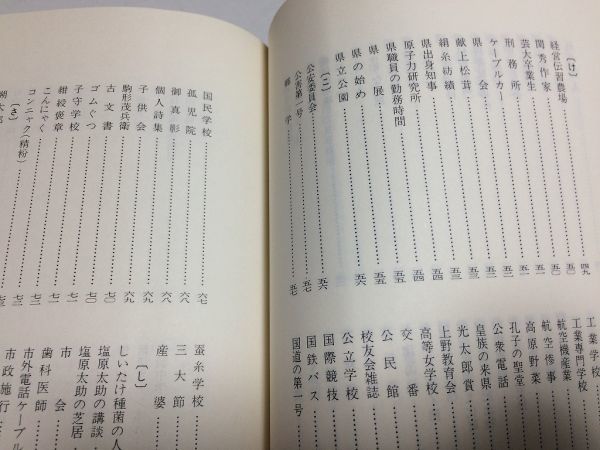 〔け〕
経営伝習農場 四九
閨秀作家 五〇
芸大卒業生 五〇
刑務所 五一
ケーブルカー 五二
県会 五二
献上松茸 五三
絹糸紡績 五三
県出身知事 五四
原子力研究所 五四
県職員の勤務時間 五四
県展 五五
県の始め 五五
県立公園 五六
〔こ〕
公安委員会 五六
公害第一号 五七
郷学 五七
工業学校
工業専門学校
航空機産業
航空惨事
高原野菜
孔子の聖堂
公衆電話
皇族の来県
光太郎賞
上野教育会
高等女学校
交番
公民館
校友会雑誌
公立学校
国際競技
国鉄バス
国道の第一号
国民学校 六七
孤児院 六八
御真影 六八
個人詩集 六九
子供会 六九
駒形茂兵衛 六九
古文書 七〇
ゴムぐつ 七〇
子守学校 七一
紺綬褒章 七一
こんにゃく 七一
コンニャク(精粉) 七二
〔さ〕
朔太郎
蚕糸学校
三大節
産婆
〔し〕
しいたけ種菌の人
塩原太助の講談
塩原太助の芝居
市会
歯科医師
市外電話ケーブル
市政施行